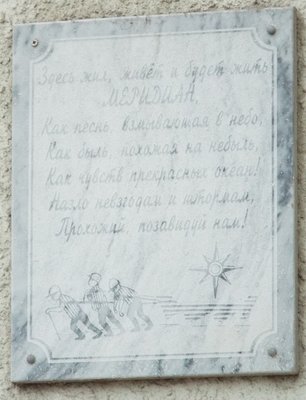 Здесь жил, живёт и будет жить
МЕРИДИАН,
Как песнь, взмывающая в небо,
Как быль, похожая на небыль,
Как чувств прекрасных океан!
Назло невзгодам и штормам,
Прохожий, позавидуй нам!